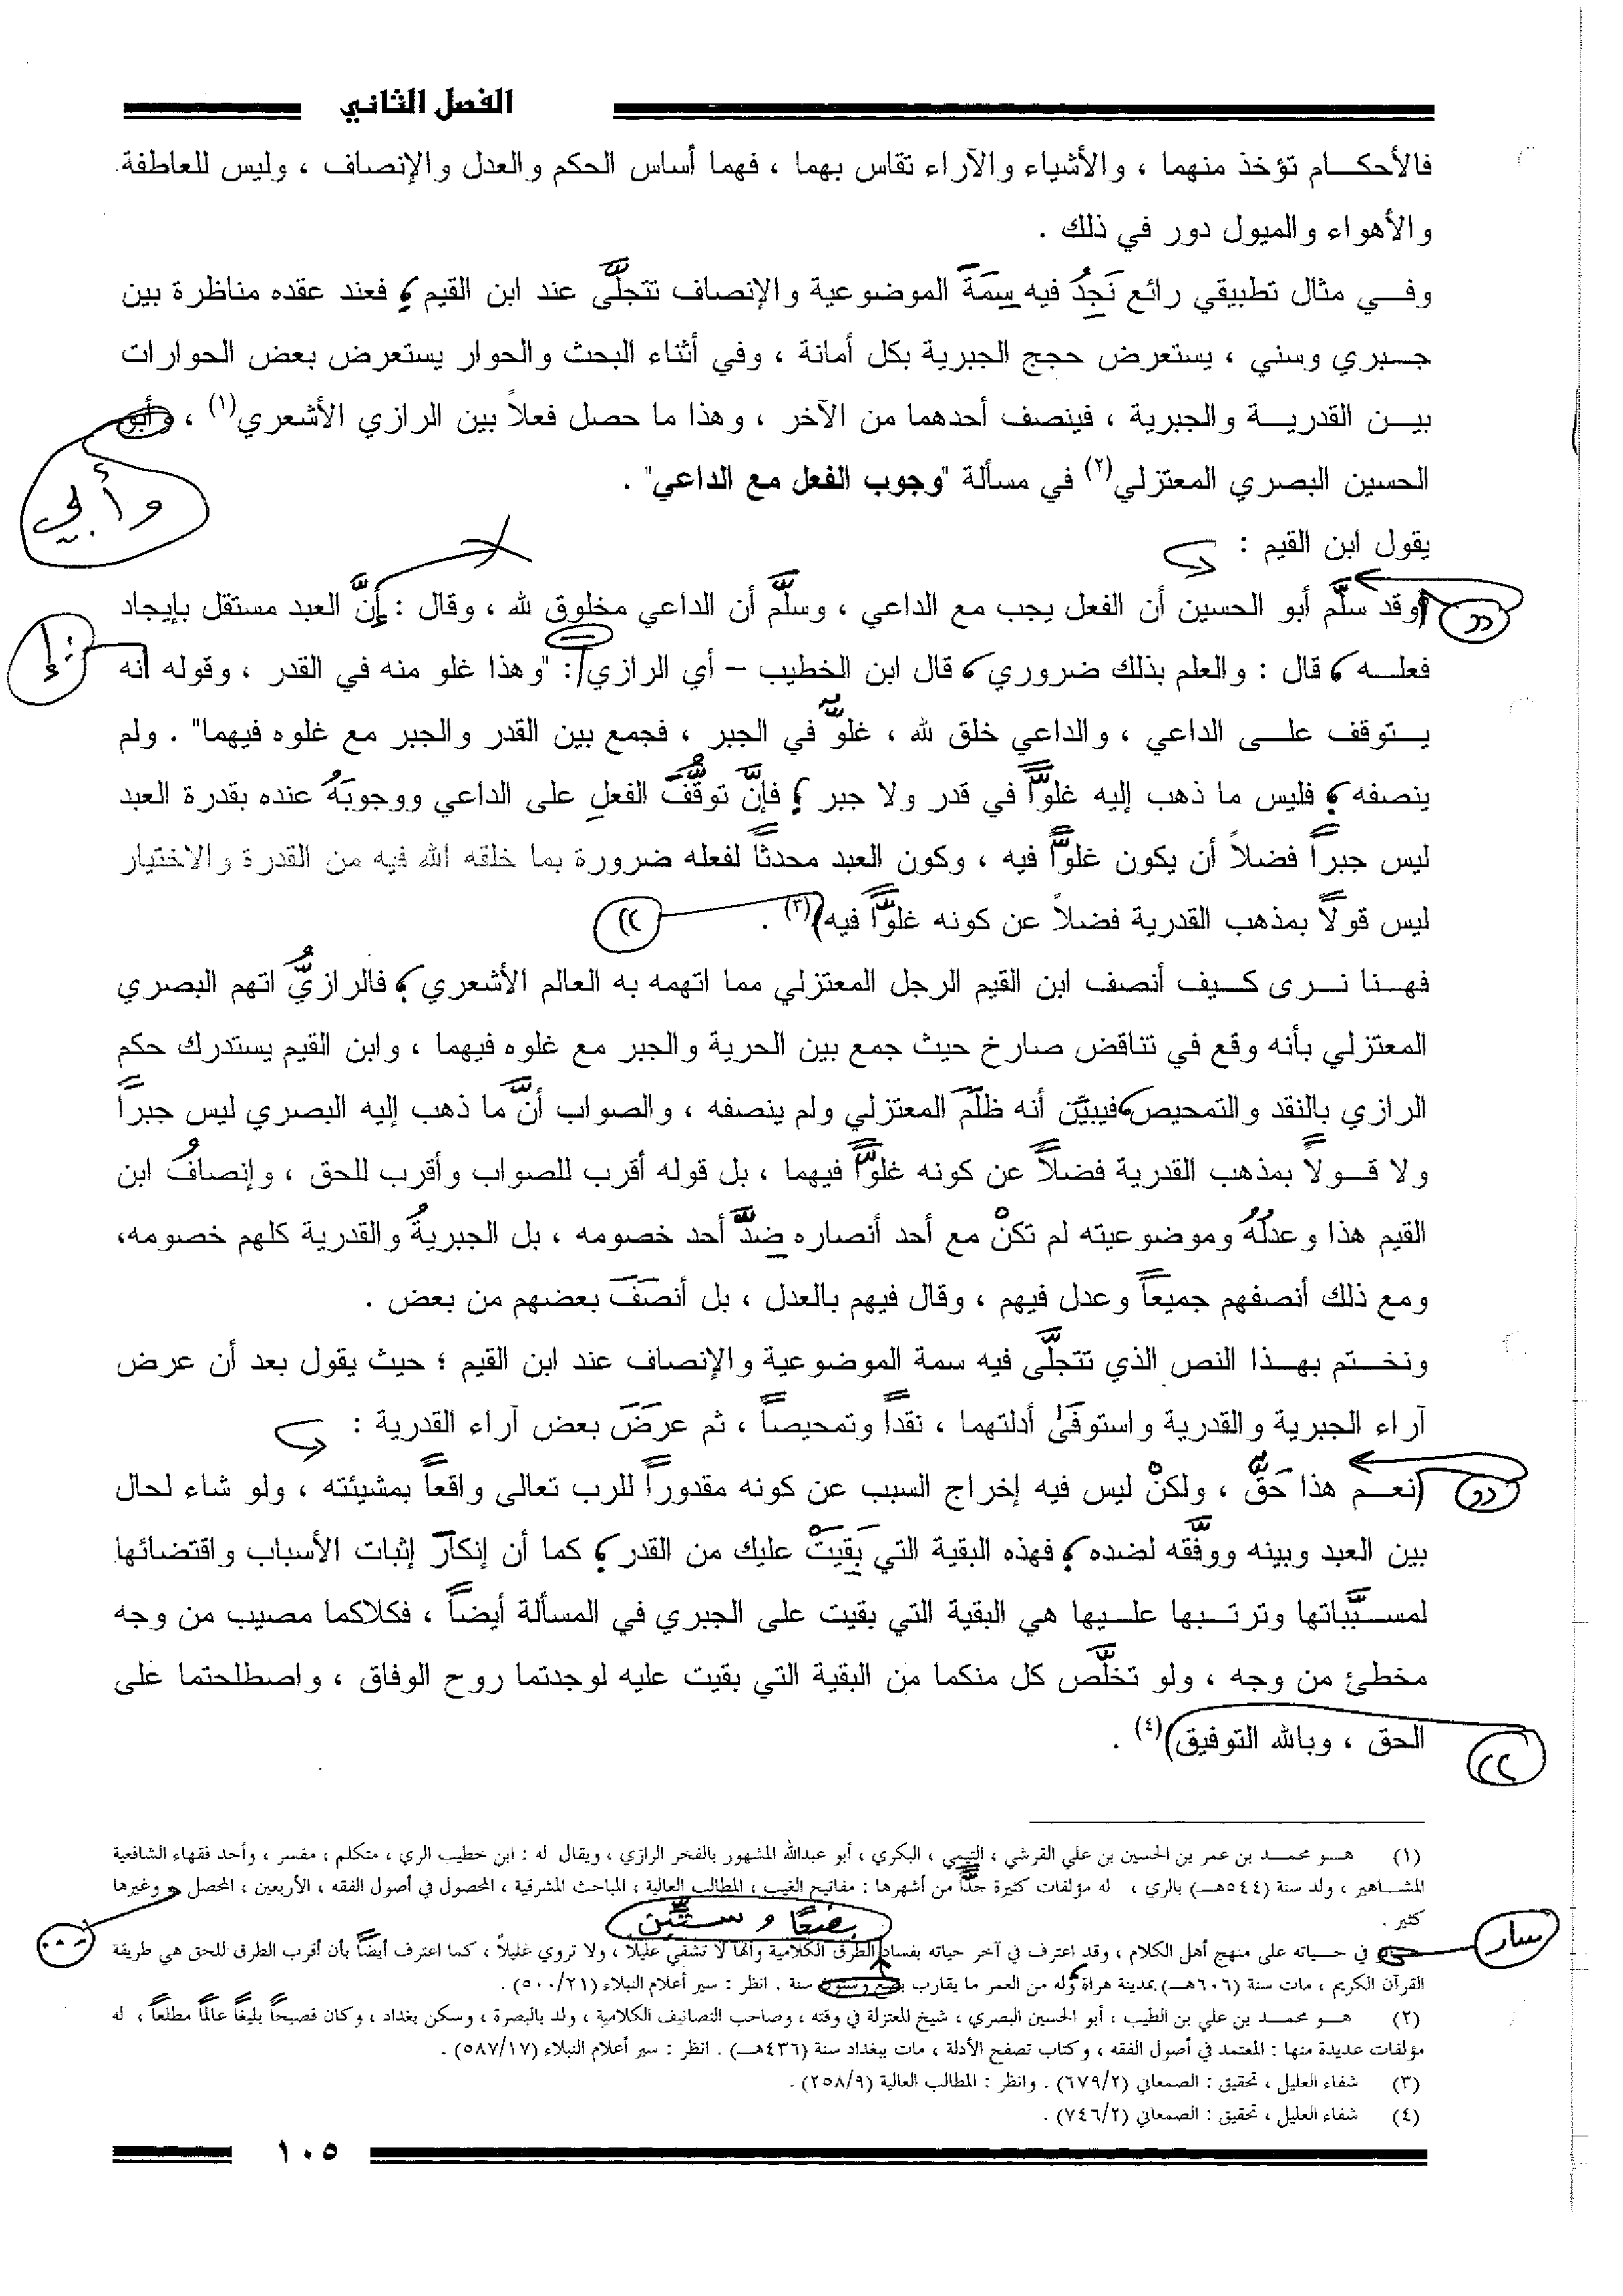 الفصل الثاني
فالأحكام تؤخذ منهما ، والأشياء والآراء تقاس بهما ، فهما أساس الحكم والعدل والإنصاف ، وليس للعاطفة
والأهواء والميول دور في ذلك .
وفي مثال تطبيقي رائع نَجِدُ فيه سِمَةَ الموضوعية والإنصاف تتجلَّى عند ابن القيم ، فعند عقده مناظرة بين
جبري وسني ، يستعرض حجج الجبرية بكل أمانة ، وفي أثناء البحث والحوار يستعرض بعض الحوارات
بين القدرية والجبرية ، فينصف أحدهما من الآخر ، وهذا ما حصل فعلاً بين الرازي الأشعري(١) ، وأبو
وأبي
الحسين البصري المعتزلي(٢) في مسألة "وجوب الفعل مع الداعي" .
يقول ابن القيم :
وقد سلَّم أبو الحسين أن الفعل يجب مع الداعي ، وسلَّم أن الداعي مخلوق لله ، وقال : إنَّ العبد مستقل بإيجاد
فعله ، قال : والعلم بذلك ضروري ، قال ابن الخطيب – أي الرازي : "وهذا غلو منه في القدر ، وقوله أنه
يتوقف على الداعي ، والداعي خلق لله ، غلوٌّ في الجبر ، فجمع بين القدر والجبر مع غلوه فيهما" . ولم
ينصفه ؛ فليس ما ذهب إليه غلوًّا في قدر ولا جبر ؛ فإنَّ توقُّفَ الفعلِ على الداعي ووجوبَهُ عنده بقدرة العبد
ليس جبراً فضلاً أن يكون غلوًّا فيه ، وكون العبد محدثاً لفعله ضرورة بما خلقه الله فيه من القدرة والاختيار
ليس قولاً بمذهب القدرية فضلاً عن كونه غلوًّا فيه(٣) .
((
فهنا نرى كيف أنصف ابن القيم الرجل المعتزلي مما اتهمه به العالم الأشعري ؛ فالرازيُّ اتهم البصري
المعتزلي بأنه وقع في تناقض صارخ حيث جمع بين الحرية والجبر مع غلوه فيهما ، وابن القيم يستدرك حكم
الرازي بالنقد والتمحيص ، فيبيّن أنه ظَلَمَ المعتزلي ولم ينصفه ، والصواب أنَّ ما ذهب إليه البصري ليس جبراً
ولا قولاً بمذهب القدرية فضلاً عن كونه غلوًّا فيهما ، بل قوله أقرب للصواب وأقرب للحق ، وإنصافُ ابن
القيم هذا وعدلُهُ وموضوعيته لم تكنْ مع أحد أنصاره ضِدَّ أحد خصومه ، بل الجبريةُ والقدرية كلهم خصومه،
ومع ذلك أنصفهم جميعاً وعدل فيهم ، وقال فيهم بالعدل ، بل أنصَفَ بعضهم من بعض .
ونختم بهذا النص الذي تتجلَّى فيه سمة الموضوعية والإنصاف عند ابن القيم ؛ حيث يقول بعد أن عرض
آراء الجبرية والقدرية واستوفَى أدلتهما ، نقداً وتمحيصاً ، ثم عرَضَ بعض آراء القدرية :
نعم هذا حَقٌّ ، ولكنْ ليس فيه إخراج السبب عن كونه مقدوراً للرب تعالى واقعاً بمشيئته ، ولو شاء لحال
بين العبد وبينه ووفَّقه لضده ؛ فهذه البقية التي بَقِيَتْ عليك من القدر ؛ كما أن إنكارَ إثبات الأسباب واقتضائها
لمسبَّباتها وترتبها عليها هي البقية التي بقيت على الجبري في المسألة أيضاً ، فكلاكما مصيب من وجه
مخطئ من وجه ، ولو تخلَّص كل منكما من البقية التي بقيت عليه لوجدتما روح الوفاق ، واصطلحتما على
الحق ، وبالله التوفيق(٤) .
((
(١) هو محمد بن عمر بن الحسين بن علي القرشي ، التيمي ، البكري ، أبو عبدالله المشهور بالفخر الرازي ، ويقال له : ابن خطيب الري ، متكلم ، مفسر ، وأحد فقهاء الشافعية
المشاهير ، ولد سنة (٥٤٤هـ) بالري ، له مؤلفات كثيرة جدًّا من أشهرها : مفاتيح الغيب ، المطالب العالية ، المباحث المشرقية ، المحصول في أصول الفقه ، الأربعين ، المحصل ، وغيرها
كثير .
بضعًا وستِّين
سار
في حياته على منهج أهل الكلام ، وقد اعترف في آخر حياته بفساد الطرق الكلامية وأنها لا تشفي عليلاً ، ولا تروي غليلاً ، كما اعترف أيضاً بأن أقرب الطرق للحق هي طريقة
القرآن الكريم ، مات سنة (٦٠٦هـ) بمدينة هراة وله من العمر ما يقارب بضع وستون سنة . انظر : سير أعلام النبلاء (٥٠٠/٢١) .
(٢) هو محمد بن علي بن الطيب ، أبو الحسين البصري ، شيخ للمعتزلة في وقته ، وصاحب التصانيف الكلامية ، ولد بالبصرة ، وسكن بغداد ، وكان فصيحاً بليغاً عالماً مطلعاً ، له
مؤلفات عديدة منها : المعتمد في أصول الفقه ، وكتاب تصفح الأدلة ، مات ببغداد سنة (٤٣٦هـ) . انظر : سير أعلام النبلاء (٥٨٧/١٧) .
(٣) شفاء العليل ، تحقيق : الصمعاني (٦٧٩/٢) . وانظر : المطالب العالية (٢٥٨/٩) .
(٤) شفاء العليل ، تحقيق : الصمعاني (٧٤٦/٢) .
١٠٥